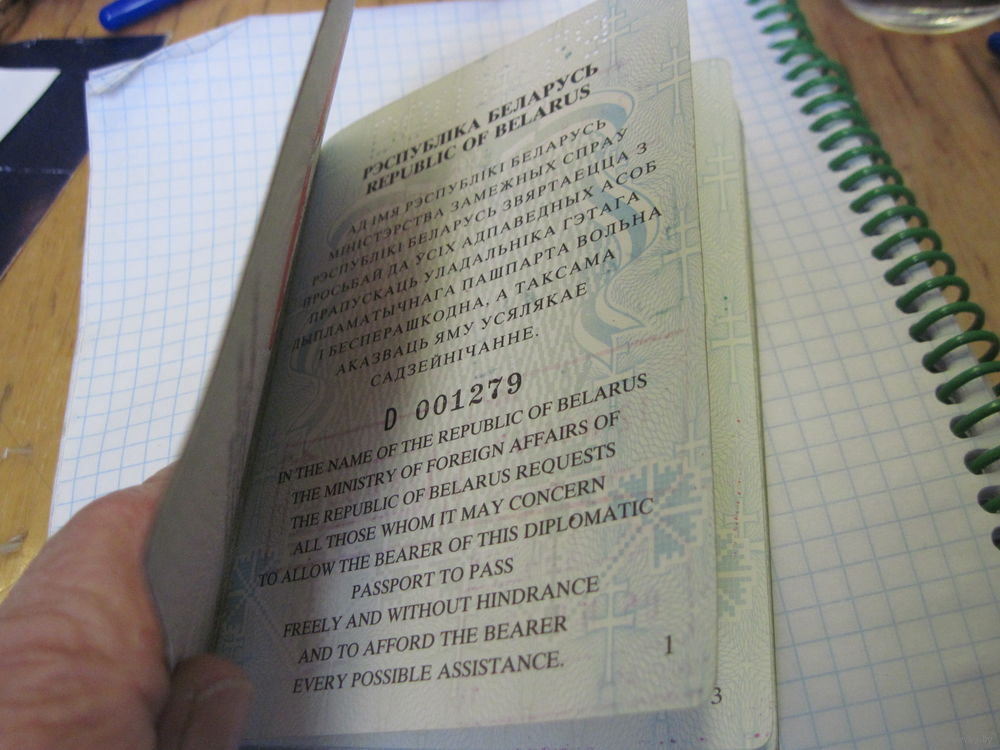 РЭСПУБЛІКА БЕЛАРУСЬ
REPUBLIC OF BELARUS
АД ІМЯ РЭСПУБЛІКІ БЕЛАРУСЬ
МІНІСТЭРСТВА ЗАМЕЖНЫХ СПРАУ
РЭСПУБЛІКІ БЕЛАРУСЬ ЗВЯРТАЕЦЦА З
ПРОСЬБАЙ ДА ЎСІХ АДПАВЕДНЫХ АСОБ
ПРАПУСКАЦЬ УЛАДАЛЬНІКА ГЭТАГА
ДЫПЛАМАТЫЧНАГА ПАШПАРТА ВОЛЬНА
І БЕСПЕРАШКОДНА, А ТАКСАМА
АКАЗВАЦЬ ЯМУ УСЯЛЯКАЕ
САДЗЕЙНІЧАННЕ.
D 001279
IN THE NAME OF THE REPUBLIC OF BELARUS
THE MINISTRY OF FOREIGN AFFAIRS OF
THE REPUBLIC OF BELARUS REQUESTS
ALL THOSE WHOM IT MAY CONCERN
TO ALLOW THE BEARER OF THIS DIPLOMATIC
PASSPORT TO PASS
FREELY AND WITHOUT HINDRANCE
AND TO AFFORD THE BEARER
EVERY POSSIBLE ASSISTANCE.
1
3